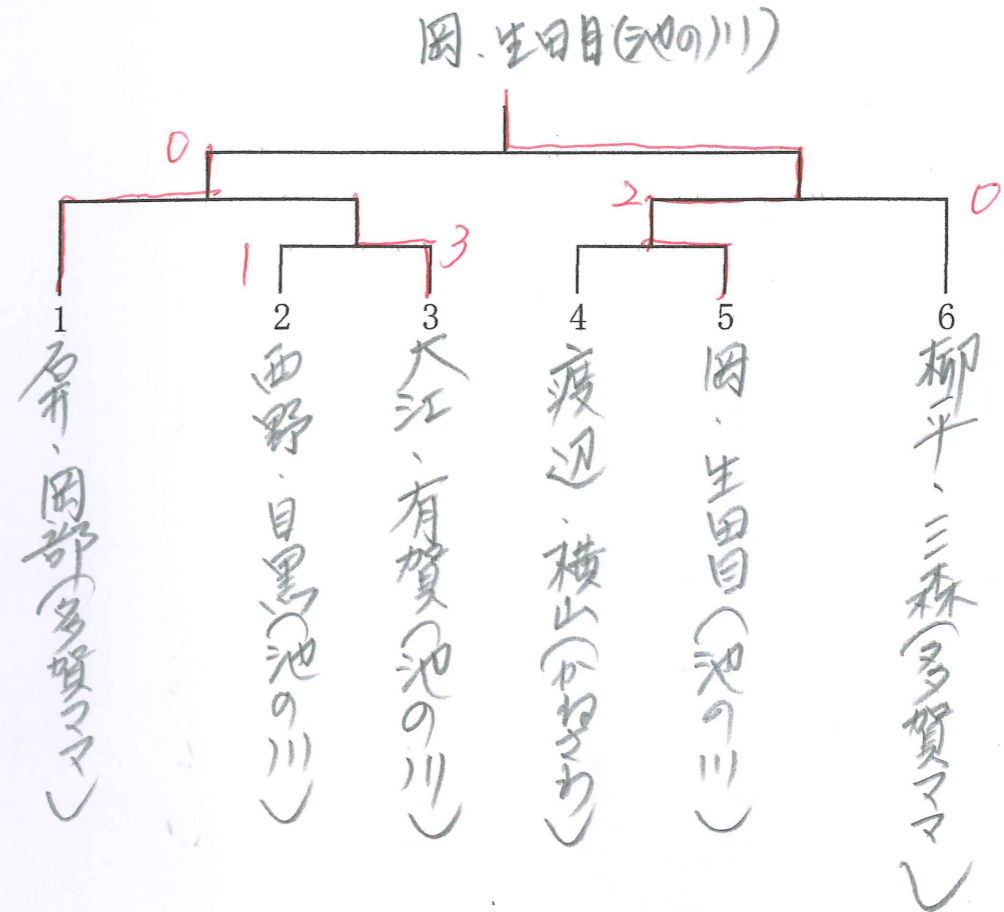 岡・生田目(池の川)
0
2
0
1
3
1
2
3
4
5
6
石井・岡部(多賀ママ)
西野・目黒(池の川)
大江・有賀(池の川)
渡辺・横山(かねさわ)
岡・生田目(池の川)
柳平・三森(多賀ママ)